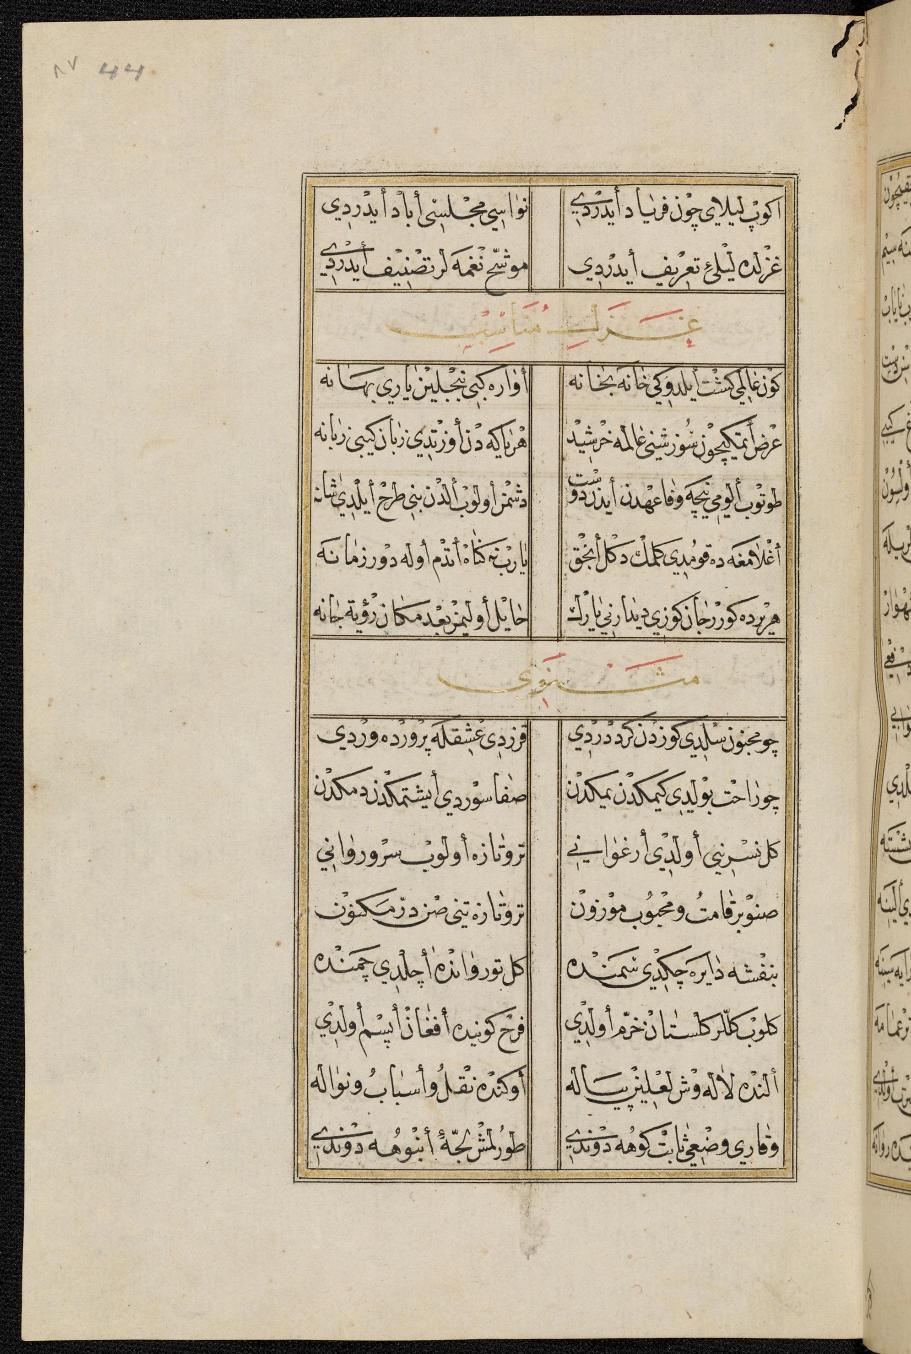 ٨٧ 44
اكوپ ليلاي چون فرياد أيدردي نواسي مجلسى أباد أيدردي
غزلده ليلئ تعريف أيدردي موشّح نغمه لر تصنيف أيدردي
غزل مناسب
كوز عالمي كشت أيلدوكي خانه بخانه أواره كبي نيجبلين ياري بهانه
عرض أتمكيچون سوزشيني عالمه خرشيد هر ياكه دن أوزتدي زبان كيبي زبانه
طوتوب أليومي نيچه وفا عهدن أيدردوست دشمن أولوب ألدن بني طرح أيلدي شانه
أغلامغه ده قومدي كلمك دكل أنجق يارب نه كناه أتدم أوله دور زمانه
هر يرده كورر جان كوزي ديدارني يارك حايل أوليمز بعد مكان رؤية جانه
مثنوى
چو مجنون سلدي كوزدن كرد دردي قزردي عشقله پرورده وردي
چو راحت بولدي كيمكدن يمكدن صفا سوردي أيشتمكدن دمكدن
كل نسريني أولدي أرغواني تروتازه أولوب سرو رواني
صنوبر قامت ومحبوب موزون تروتازه تني صن در مكنون
بنفشه دايره چكدي سمنده كل تور واندە أچلدي چمنده
كلوب كللر كلستان خرّم أولدي فرح كونيده أفغان أبسم أولدي
ألنده لاله وش لعلين پياله أوكنده نقل وأسباب ونواله
وقاري وضعي ثابت كوهه دوندي طورلمش لجّۀ أنبوهه دوندي